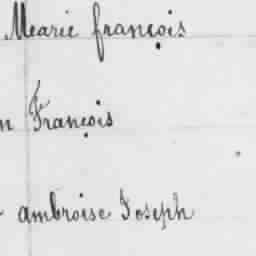 Mearie françois
n François
ambroise Joseph